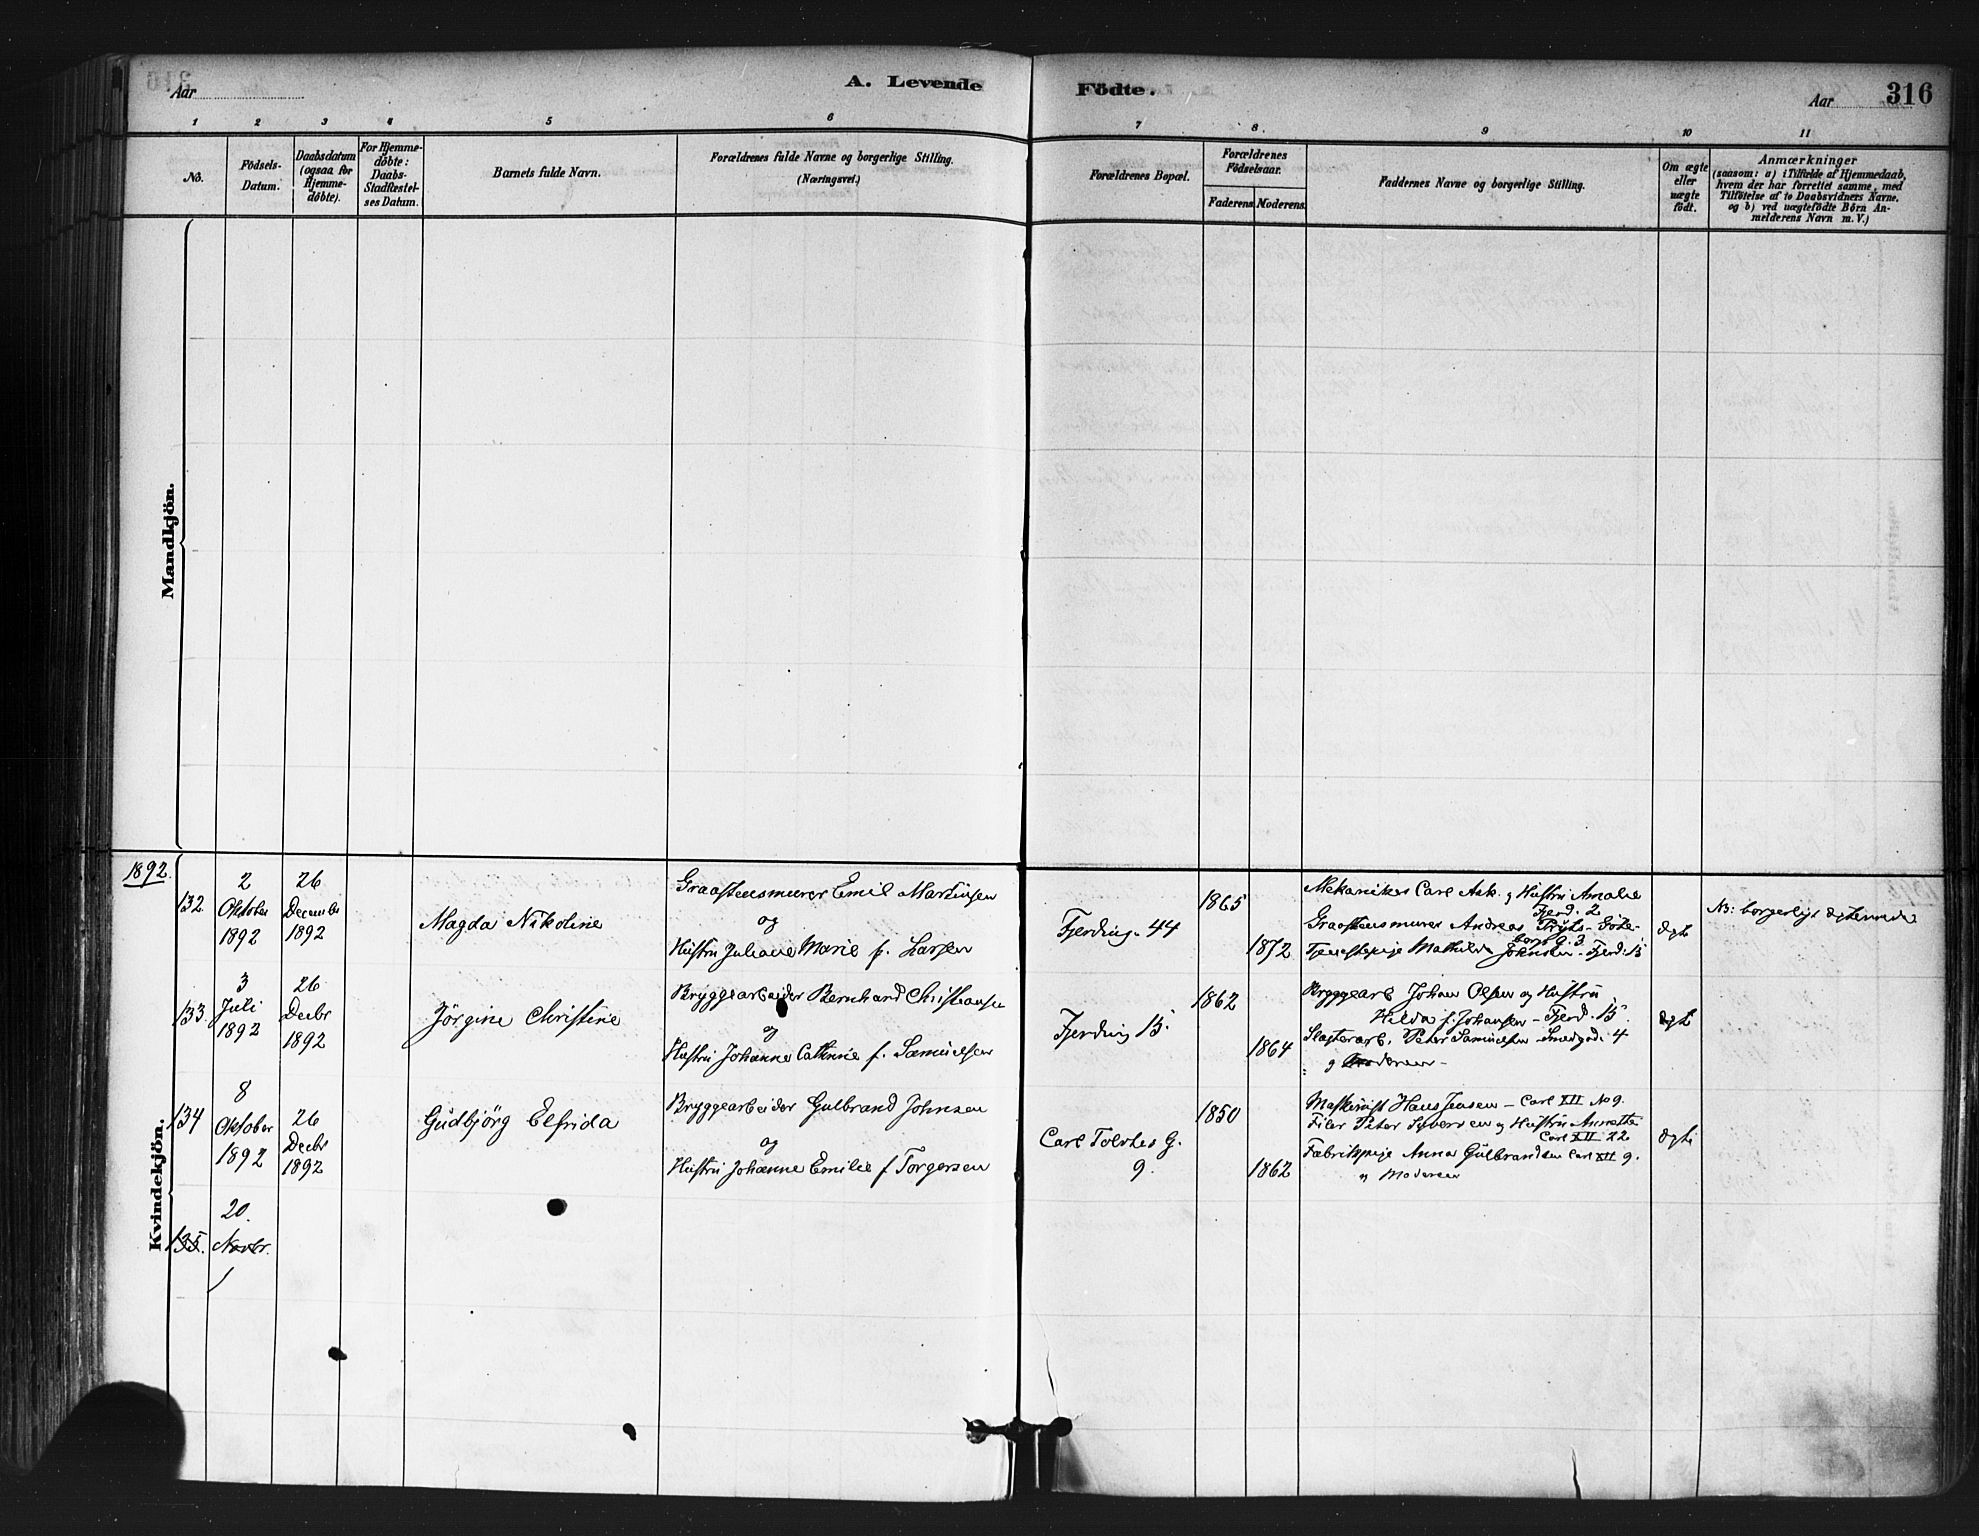 Aar
A. Levende
Födte.
Aar
316
1 2 3 4 5 6 7 8. 9 10 11
No.
Födsels-
Datum.
Daabsdatum
(ogsaa for
Hjemme-
döbte).
For Hjemme-
döbte:
Daabs-
Stadfæstel-
ses Datum.
Barnets fulde Navn.
Forældrenes fulde Navne og borgerlige Stilling.
(Næringsvei.)
Forældrenes Bopæl.
Forældrenes
Födselsaar.
Faderens. Moderens.
Faddernes Navne og borgerlige Stilling.
Om ægte
eller
uægte
födt.
Anmærkninger
(saasom: a) i Tilfælde af Hjemmedaab,
hvem der har forrettet samme, med
Tilföielse af to Daabsvidners Navne,
og b) ved uægtefödte Börn An-
melderens Navn m. V.)
Mandkjön.
Kvindekjön.
1892.
132.
2
Oktober
1892
26
December
1892
Magda Nikoline
Graasteensmurer Emil Martinsen
og
Hustru Juliane Marie f. Larsen
Fjerding. 44
1865
1872
Mekaniker Carl Ask. og Hustru Amalie
Fjerd. 2
Graasteensmurer Andreas
borg g. 3.
Tjenestepige Mathilde Johnsen - Fjerd. 15
ægte
NB: borgerligt ægteviede
133.
3
Juli
1892
26
Decbr
1892
Jörgine Christine
Bryggearbeider Bernhard Christiansen
og
Hustru Johanne Cathrine f. Samuelsen
Fjerding 15.
1862
1864
Bryggearb Johan Olsen og Hustru
Hilda f. Johansen - Fjerd. 15.
Slagterarb. Peter Samuelsen Smedgd. 4
" og Moderen -
ægte
134
8
Oktober
1892
26
Decbr
1892
Gudbjörg Elfrida
Bryggearbeider Gulbrand Johnsen
og
Hustru Johanne Emilie f Torgersen
Carl Tolvtes G.
9.
1850
1862
Maskinist Hans Jensen - Carl XII No 9.
Filer Peter Syversen og Hustru Annette
Carl XII 22
Fabrikpige Anna Gulbrandsen Carl XII 9.
og Moderen
ægte
135.
20.
Novbr.